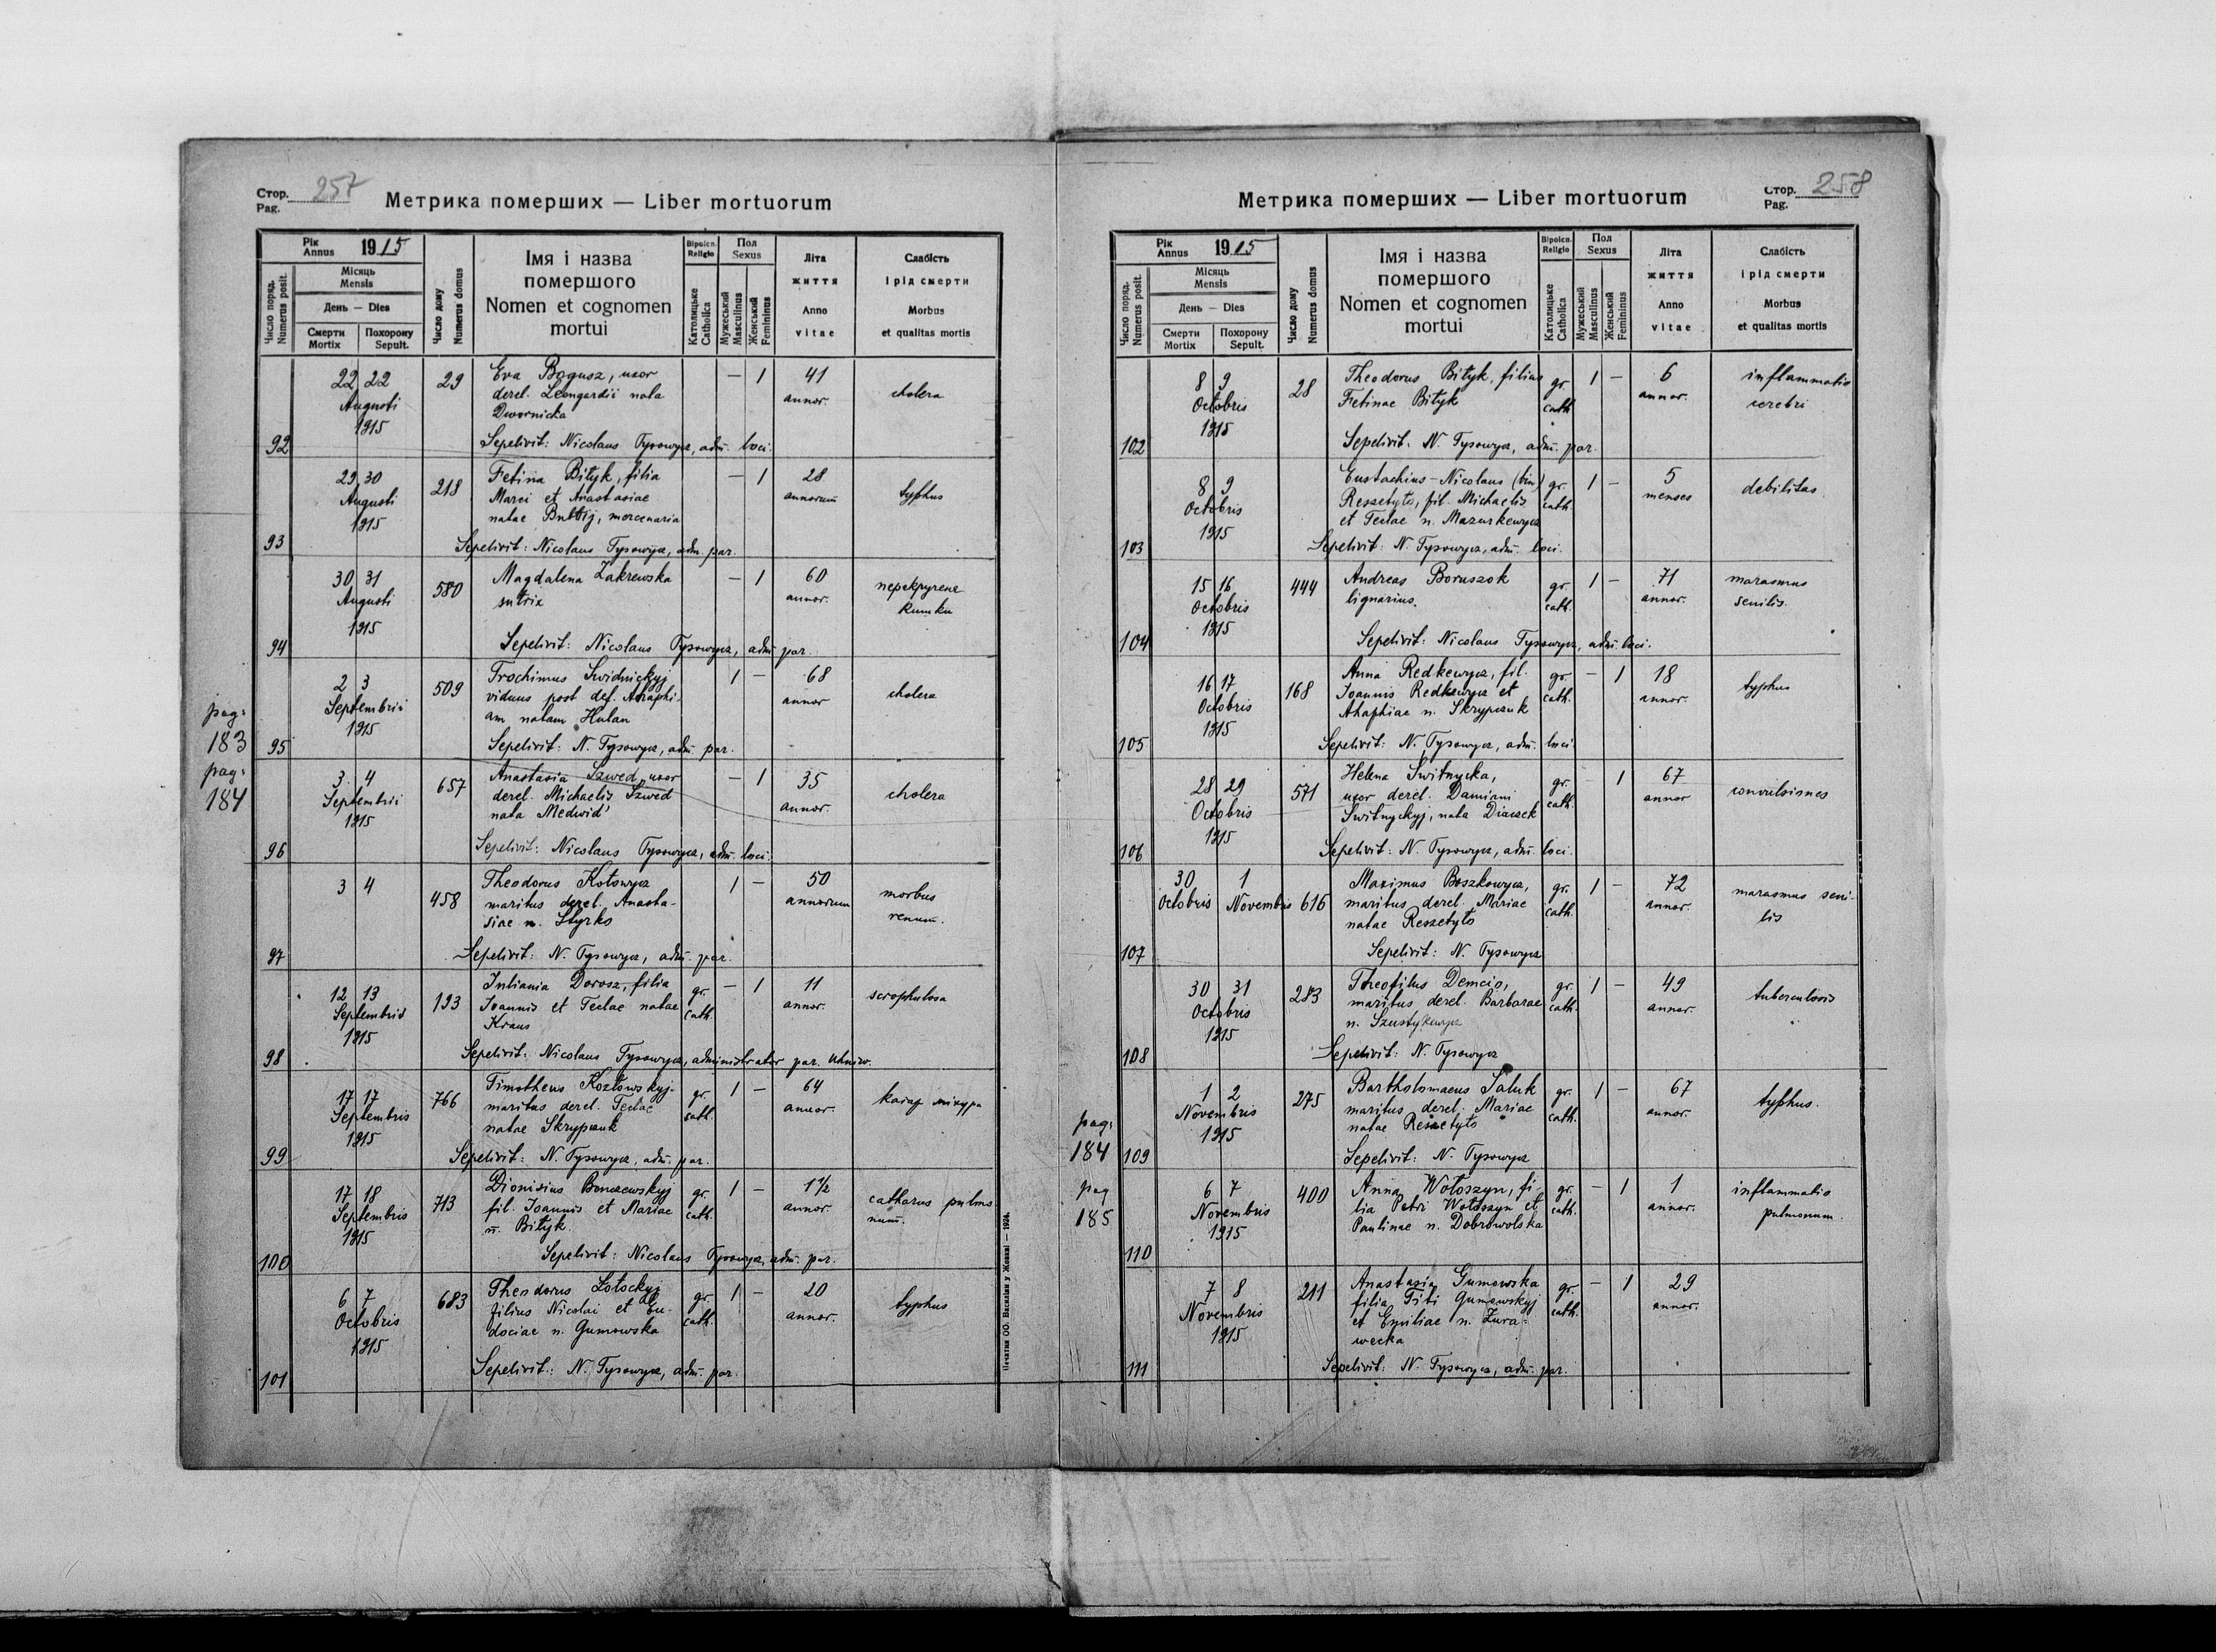 Стор. 257
Pag.
Метрика померших — Liber mortuorum
Рік
Annus 1915
Число поряд.
Numerus posit.
Місяць
Mensis
День — Dies
Смерти
Mortix
Похорону
Sepult.
Число дому
Numerus domus
Імя і назва
помершого
Nomen et cognomen
mortui
Віроісп.
Religio
Католицьке
Catholica
Пол
Sexus
Мужеський
Masculinus
Женський
Femininus
Літа
життя
Anno
vitae
Слабість
і рід смерти
Morbus
et qualitas mortis
92
22 22
Augusti
1915
29
Eva Bogusz, uxor
derel. Leongardii nata
Dwornicka
— 1
41
annor.
cholera
Sepelivit: Nicolaus Tysowycz, adm. loci.
93
29 30
Augusti
1915
218
Fetina Bityk, filia
Marci et Anastasiae
natae, mercenaria
— 1
28
annorum
typhus
Sepelivit: Nicolaus Tysowycz, adm. par.
94
30 31
Augusti
1915
580
Magdalena Zakrewska
sutrix
— 1
60
annor.
перекручене
кишки
Sepelivit: Nicolaus Tysowycz, adm. par.
pag.
183
95
2 3
Septembris
1915
509
Trochimus Swidnickyj
viduus post def. Ahaphi-
am natam Hulan
1 —
68
annor
cholera
Sepelivit: N. Tysowycz, adm. par.
pag.
184
96
3 4
Septembris
1915
657
Anastasia Szwed, uxor
derel. Michaelis Szwed
nata Medwid'
— 1
35
annor.
cholera
Sepelivit: Nicolaus Tysowycz, adm. loci.
97
3 4
458
Theodorus Kotowycz
maritus derel. Anasta-
siae n. Styrko
1 —
50
annorum
morbus
renum.
Sepelivit: N. Tysowycz, adm. par.
98
12 13
Septembris
1915
193
Juliania Dorosz, filia
Joannis et Teclae natae
Kraus
gr.
cath.
— 1
11
annor.
scrophulosa
Sepelivit: Nicolaus Tysowycz, administrator par. Uhniw.
99
17 17
Septembris
1915
766
Timotheus Kozłowskyj
maritus derel. Teclae
natae Skrypczuk
gr.
cath.
1 —
64
annor.
катар міхура
Sepelivit: N. Tysowycz, adm. par.
100
17 18
Septembris
1915
713
Dionisius Bonczewskyj
fil. Joannis et Mariae
n. Bityk.
gr.
cath.
1 —
1½
annor.
catharus pulmo
num.
Sepelivit: Nicolaus Tysowycz, adm. par.
101
6 7
Octobris
1915
683
Theodorus Zołockyj
filius Nicolai et Eu-
dociae n. Gumowska
gr.
cath.
1 —
20
annor.
typhus
Sepelivit: N. Tysowycz, adm. par.
Печатня ОО. Василіян у Жовкві — 1926.
Стор. 258
Pag.
Метрика померших — Liber mortuorum
Рік
Annus 1915
Число поряд.
Numerus posit.
Місяць
Mensis
День — Dies
Смерти
Mortix
Похорону
Sepult.
Число дому
Numerus domus
Імя і назва
помершого
Nomen et cognomen
mortui
Віроісп.
Religio
Католицьке
Catholica
Пол
Sexus
Мужеський
Masculinus
Женський
Femininus
Літа
життя
Anno
vitae
Слабість
і рід смерти
Morbus
et qualitas mortis
102
8 9
Octobris
1915
28
Theodorus Bityk, filius
Fetinae Bityk
gr.
cath.
1 —
6
annor.
inflammatio
cerebri
Sepelivit. N. Tysowycz, adm. par.
103
8 9
Octobris
1915
Eustachius-Nicolaus (bin)
Reszetyło, fil. Michaelis
et Teclae n. Mazurkewycz
gr.
cath.
1 —
5
menses
debilitas
Sepelivit: N. Tysowycz, adm. loci.
104
15 16
Octobris
1915
444
Andreas Boruszok
lignarius.
gr.
cath.
1 —
71
annor.
marasmus
senilis.
Sepelivit: Nicolaus Tysowycz, adm. loci.
105
16 17
Octobris
1915
168
Anna Redkewycz, fil.
Joannis Redkewycz et
Ahaphiae n. Skrypczuk
gr.
cath.
— 1
18
annor.
typhus
Sepelivit: N. Tysowycz, adm. loci.
106
28 29
Octobris
1915
571
Helena Switnycka,
uxor derel. Damiani
Switnyckyj, nata Diaczek
gr.
cath.
1
67
annor
convulsiones
Sepelivit: N. Tysowycz, adm. loci.
107
30 1
Octobris Novembris
616
Maximus Boszkowycz,
maritus derel. Mariae
natae Reszetyło
gr.
cath.
1 —
72
annor.
marasmus seni-
lis
Sepelivit: N. Tysowycz
108
30 31
Octobris
1915
283
Theofilus Demcio,
maritus derel. Barbarae
n. Szustykewycz
gr.
cath.
1 —
49
annor.
tuberculosis
Sepelivit: N. Tysowycz
pag.
184
109
1 2
Novembris
1915
275
Bartholomaeus Saluk
maritus derel. Mariae
natae Reszetyło
gr.
cath.
1 —
67
annor.
typhus.
Sepelivit: N. Tysowycz
pag
185
110
6 7
Novembris
1915
400
Anna Wołoszyn, fi-
lia Petri Wołoszyn et
Paulinae n. Dobrowolska
gr.
cath.
— 1
1
annor.
inflammatio
pulmonum.
111
7 8
Novembris
1915
211
Anastasia Gumowska
filia Titi Gumowskyj
et Emiliae n. Żura-
wecka
gr.
cath.
— 1
29
annor.
Sepelivit: N. Tysowycz, adm. par.